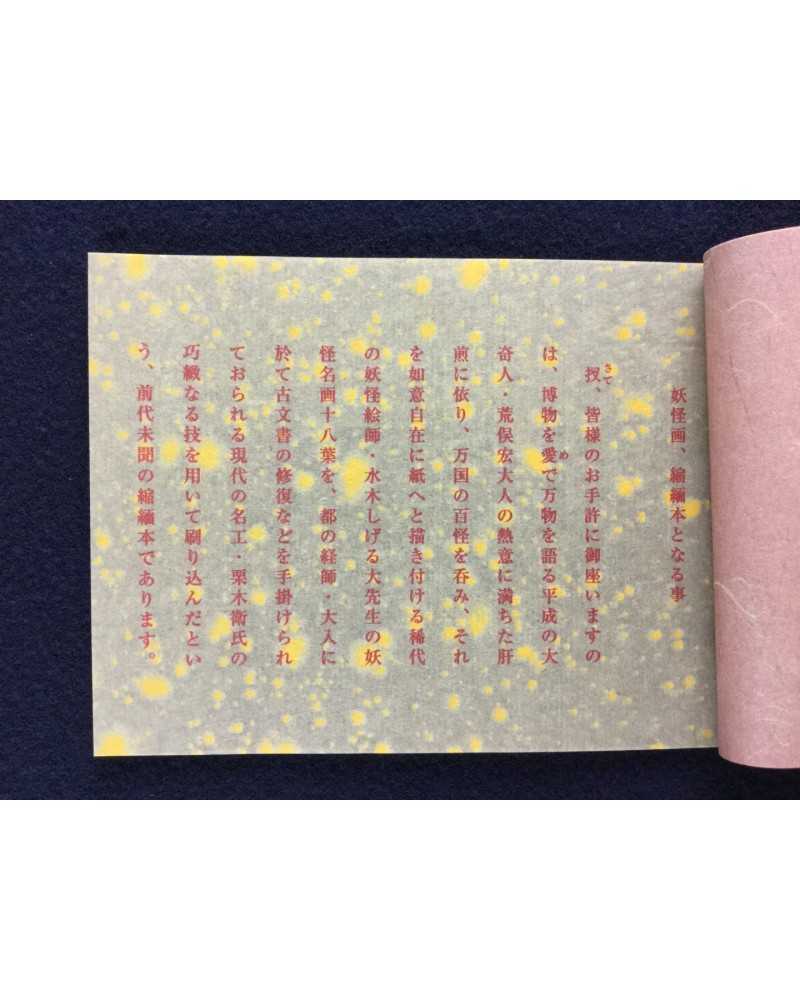 妖怪画、縮緬本となる事
扨、皆様のお手許に御座いますの
さて
は、博物を愛で万物を語る平成の大
め
奇人・荒俣宏大人の熱意に満ちた肝
煎に依り、万国の百怪を呑み、それ
を如意自在に紙へと描き付ける稀代
の妖怪絵師・水木しげる大先生の妖
怪名画十八葉を、都の経師・大入に
於て古文書の修復などを手掛けられ
ておられる現代の名工・栗木衛氏の
巧緻なる技を用いて刷り込んだとい
う、前代未聞の縮緬本であります。